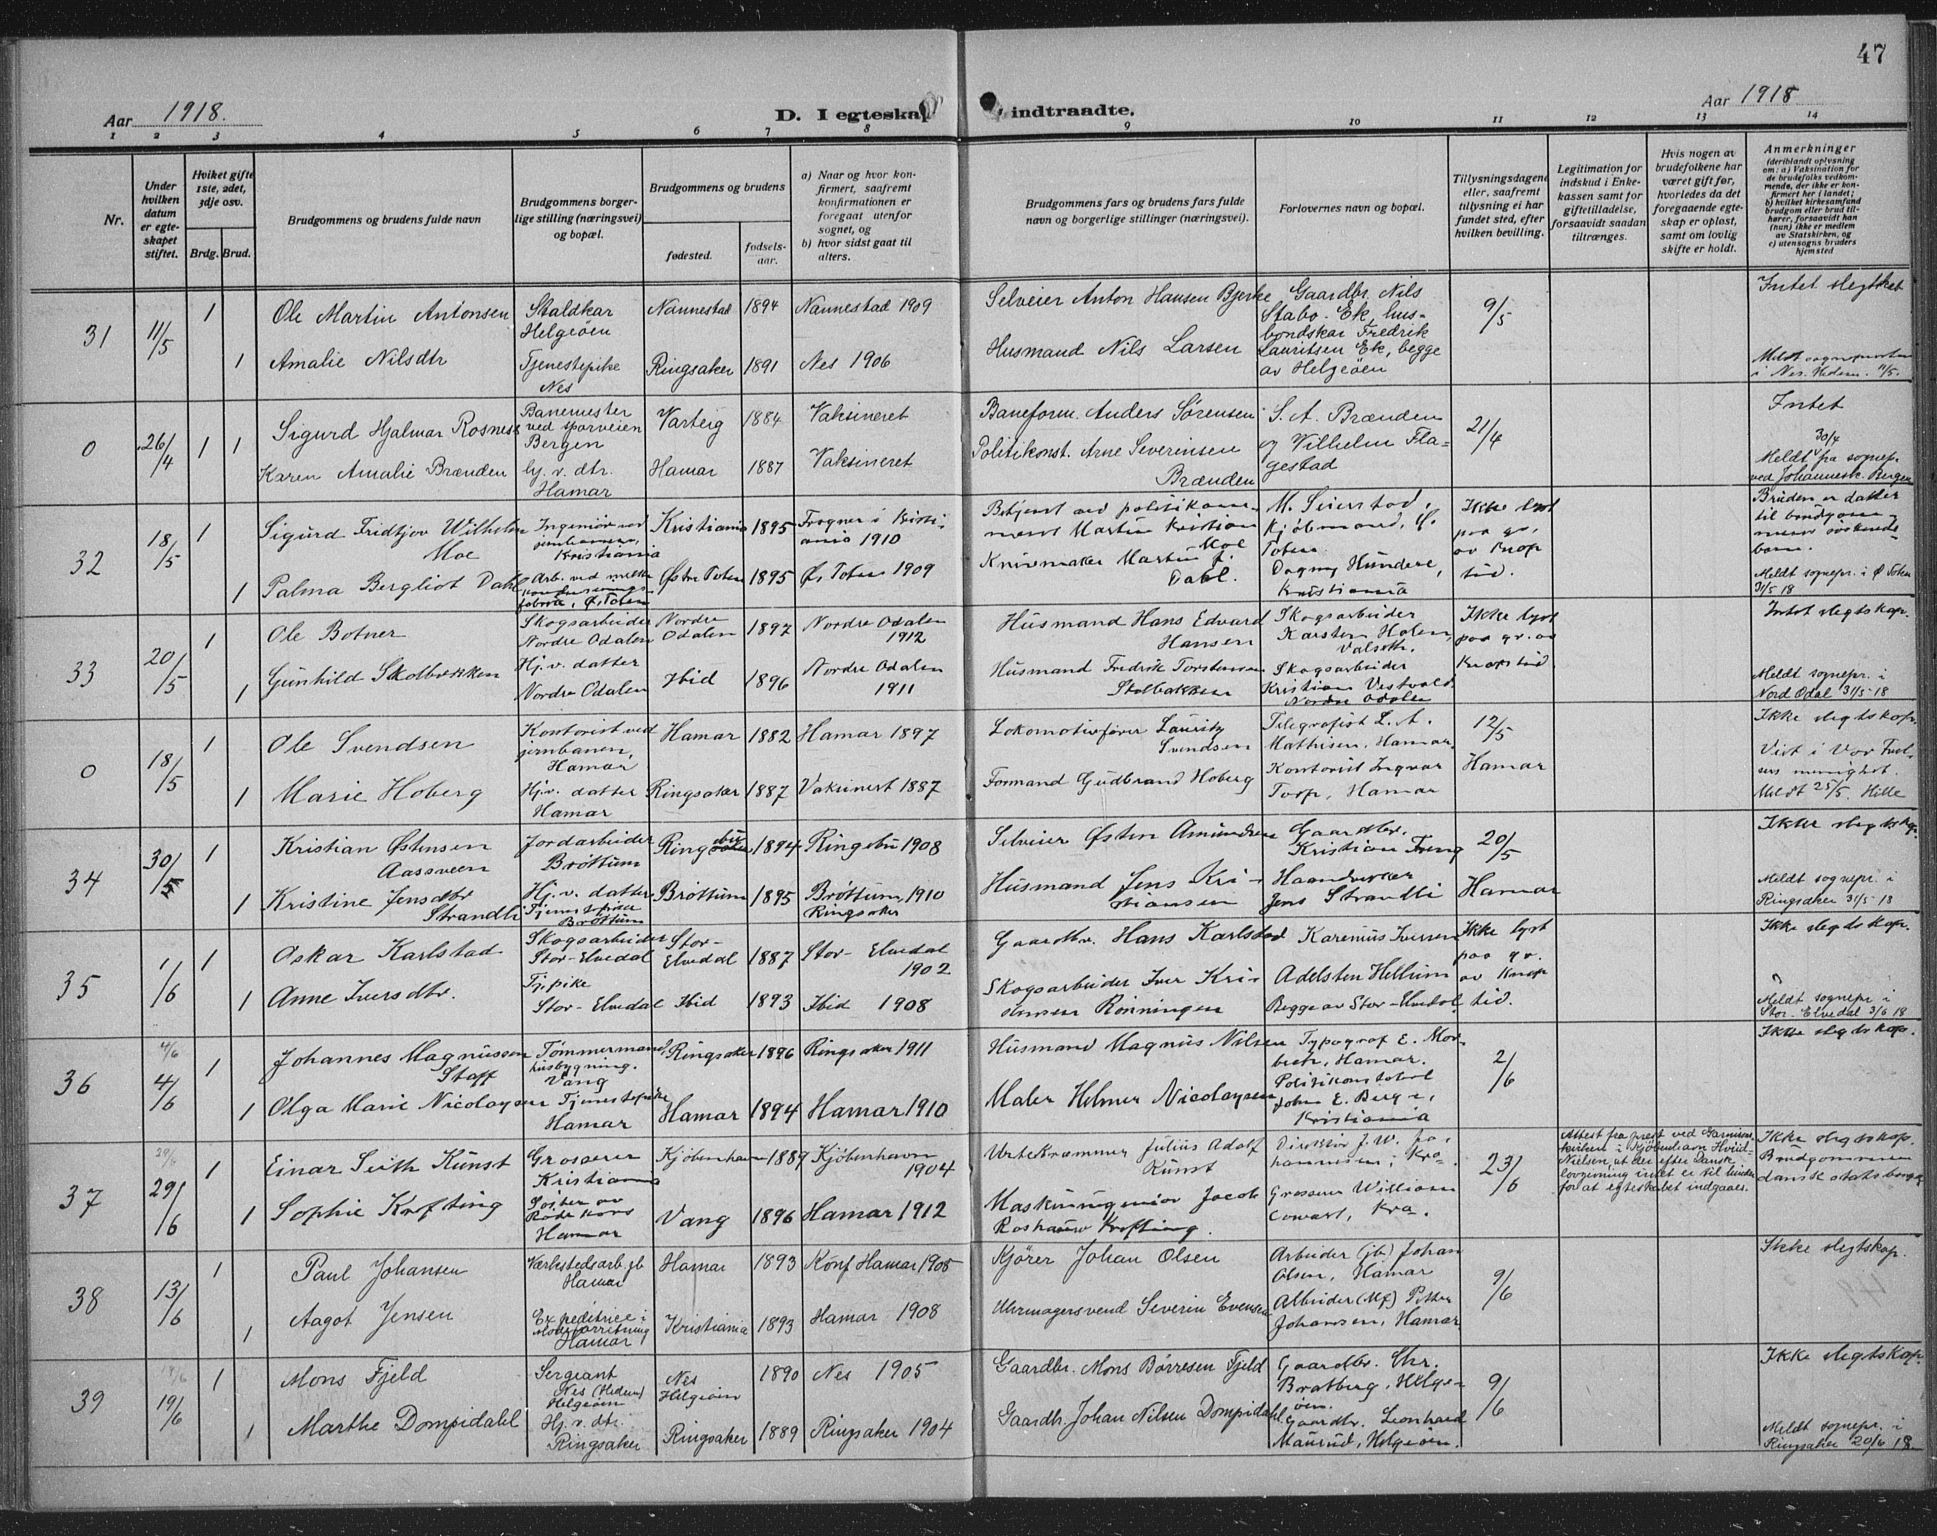 47
Aar 1918.
D. I egteskap indtraadte.
Aar 1918
1 2 3 4 5 6 7 8 9 10 11 12 13 14
Nr.
Under hvilken datum er egteskapet stiftet.
Hviket gifte 1ste, 2det, 3dje osv.
Brdg. Brud.
Brudgommens og brudens fulde navn
Brudgommens borgerlige stilling (næringsvei) og bopæl.
Brudgommens og brudens
fødested.
fødsels-aar.
a) Naar og hvor konfirmert, saafremt konfirmationen er foregaat utenfor sognet, og
b) hvor sidst gaat til alters.
Brudgommens fars og brudens fars fulde navn og borgerlige stillinger (næringsvei).
Forlovernes navn og bopæl.
Tillysningsdagene eller, saafremt tillysning ei har fundet sted, efter hvilken bevilling.
Legitimation for indskud i Enkekassen samt for giftetilladelse, forsaavidt saadan tiltrænges.
Hvis nogen av brudefolkene har været gift før, hvorledes da det foregaaende egteskap er opløst, samt om lovlig skifte er holdt.
Anmerkninger
(deriblandt oplysning om: a) Vaksination for de brudefolks vedkommende, der ikke er konfirmert her i landet; b) hvilket kirkesamfund brudgom eller brud tilhører, forsaavidt han (hun) ikke er medlem av Statskirken, og c) utensogns bruders hjemsted
31 11/5 1 Ole Martin Antonsen Staldkar Helgeøen Nannestad 1894 Nannestad 1909 Selveier Anton Hansen Bjerke Gaardbr. Nils Stabo. Ek, husbondskar Fredrik Lauritsen Ek, begge av Helgeøen 9/5 Intet slegtskab
1 Amalie Nilsdtr Tjenestepike Nes Ringsaker 1891 Nes 1906 Husmand Nils Larsen Meldt sognepresten i Nes. Hedem. 11/5.
0 26/4 1 1 Sigurd Hjalmar Rosness Banemester ved sporveien Bergen Varteig 1884 Vaksineret Baneform. Anders Sørensen S. A. Brænden og Vilhelm Flagestad 21/4 Intet
Karen Amalie Brænden hj. v. dtr. Hamar Hamar 1887 Vaksineret Politikonst. Arne Severinsen Brænden 30/4 Meldt fra sognepr. ved Johannesk. Bergen
32 18/5 1 Sigurd Fridtjov Wilhelm Moe Ingeniør ved jernbanen, Kristiania Kristiania 1895 Frogner i Kristiania 1910 Betjent ved politikammeret Martin Kristian Moe M. Seierstad, Kjøbmand, Ø. Toten Ikke lyst paa gr. av knap tid. Bruden er datter til brudgommens søskendebarn.
1 Palma Bergliot Dahl Arb. ved melkekondenseringsfabrik, Ø. Toten Østre Toten 1895 Øs Toten 1909 Knivmaker Martin J. Dahl. Dagny Hundere, Kristiania Meldt sognepr. i Ø Toten 31/5 18
33 20/5 1 Ole Botner Skogsarbeider Nordre Odalen Nordre Odalen 1897 Nordre Odalen 1912 Husmand Hans Edvard Hansen Skogsarbeider Karsten Holen, Valseth. Ikke lyst paa gr. av Knapstid Intet slegtskap.
1 Gunhild Skolbækken Hj. v. datter Nordre Odalen Ibid 1896 Nordre Odalen 1911 Husmand Fredrik Torstensen Skolbækken Skogsarbeider Kristian Vestvold Nordre Odalen Meldt sognepr. i Nord Odal 31/5-18
0 18/5 1 Ole Svendsen Kontorist ved jernbanen, Hamar Hamar 1882 Hamar 1897 Lokomotivfører Lauritz Svendsen Telegrafist L. A. Mathisen, Hamar 12/5 Ikke slegtskap.
1 Marie Hoberg Hj. v. datter Hamar Ringsaker 1887 Vaksinert 1887 Formand Gudbrand Hoberg Kontorist Ingvar Torp, Hamar Hamar Viet i Vor Frelsers menighet. Meldt 25/5. Hille
34 30/5 1 Kristian Østensen Aassveen Jordarbeider Brøttum Ringebu 1894 Ringebu 1908 Selveier Østen Amundsen Gaardbr. Kristian Treng 20/5 Ikke slegtskap
1 Kristine Jensdtr Strandli Hj. v. datter Tjenestepike Brøttum Brøttum 1895 Brøttum, 1910 Ringsaker Husmand Jens Kristiansen Haandverker Jens Strandli Hamar Meldt sognepr. i Ringsaker 31/5-18
35 1/6 1 Oskar Karlstad Skogsarbeider Stor-Elvedal Stor-Elvedal 1887 Stor-Elvedal 1902 Gaardbr. Hans Karlstad Karenius Iversen Ikke lyst paa gr. av knap tid. Ikke slegtskap.
1 Anne Iversdtr. Tj.pike Stor-Elvedal Ibid 1893 Ibid 1908 Skogsarbeider Iver Kristiansen Rønningen Adelsten Hellum Begge av Stor-Elvedal Meldt sognepr i Stor-Elvedal 3/6 18
36 4/6 4/6 1 Johannes Magnussen Staff Tømmermand, husbygning. Vang Ringsaker 1896 Ringsaker 1911 Husmand Magnus Nilsen Typograf E. Morbech, Hamar. 2/6 Ikke slegtskap.
1 Olga Marie Nicolaysen Tjenestepike Hamar Hamar 1894 Hamar 1910 Maler Helmer Nicolaysen Politikonstabel John E. Berge, Kristiania
37 29/6 29/6 1 Einar Seith Kunst Grosserer Kristiania Kjøbenhavn 1889 Kjøbenhavn 1904 Urtekræmmer Julius Adolf Kunst Direktør J. W. Johannesen, Kra. 23/6 Attest fra prest ved Garnisonskirken i Kjøbenhavn Hvid-Nielsen, at der efter dansk lovgivning intet er til hinder for at egteskabet indgaaes. Ikke slegtskap. Brudgommen dansk statsborger
1 Sophie Krofting Søster av Røde Kors Hamar Vang 1896 Hamar 1912 Maskiningeniør Jacob Roshauw Krofting. Grosserer William Cowart, Kra.
38 13/6 1 Paul Johansen Værkstedsarb. jb Hamar Hamar 1893 Konf Hamar 1908 Kjører Johan Olsen Arbeider (jb) Johan Olsen, Hamar 9/6 Ikke slegtskap.
1 Aagot Jensen Expeditrice i Moteforretning Hamar Kristiania 1893 Hamar 1908 Uhrmagersvend Severin Evensen Arbeider (Mf) Petter Johansen, Hamar
39 19/6 1 Mons Fjeld Sergeant Nes (Hedem) Helgeøen Nes Helgeøen 1890 Nes 1905 Gaardbr. Mons Børresen Fjeld Gaardbr. Chr. Bratberg, Helgeøen. 9/6 Ikke slegtskap.
1 Marthe Dompidahl Hj. v. dtr. Ringsaker Ringsaker 1889 Ringsaker 1904 Gaardbr. Johan Nilsen Dompidahl Gaardbr. Leonhard Maurud, Helgeøen. Meldt sognepr. i Ringsaker 20/6 18